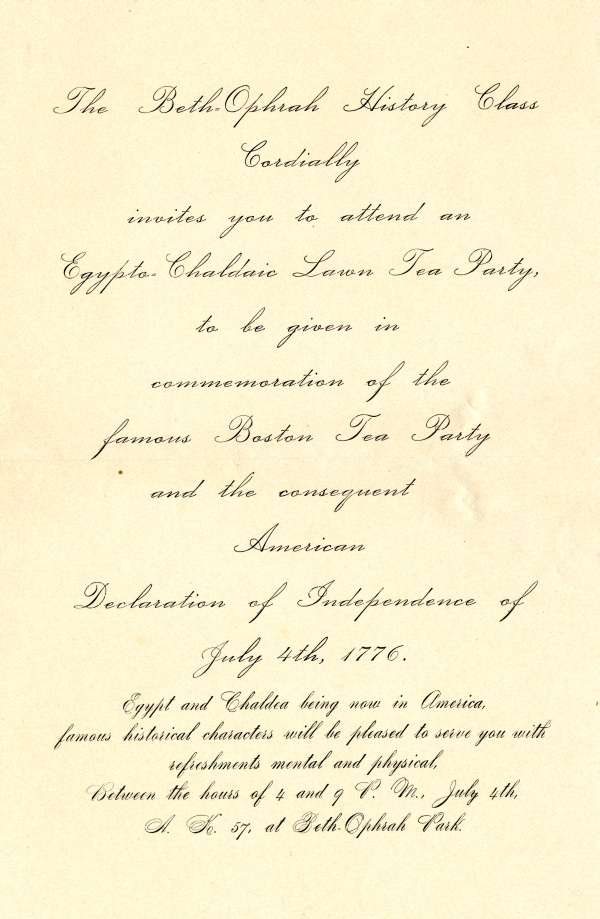 The Beth-Ophrah History Class
Cordially
invites you to attend an
Egypto-Chaldaic Lawn Tea Party,
to be given in
commemoration of the
famous Boston Tea Party
and the consequent
American
Declaration of Independence of
July 4th, 1776.
Egypt and Chaldea being now in America,
famous historical characters will be pleased to serve you with
refreshments mental and physical,
Between the hours of 4 and 9 P. M., July 4th,
A. K. 57, at Beth-Ophrah Park.